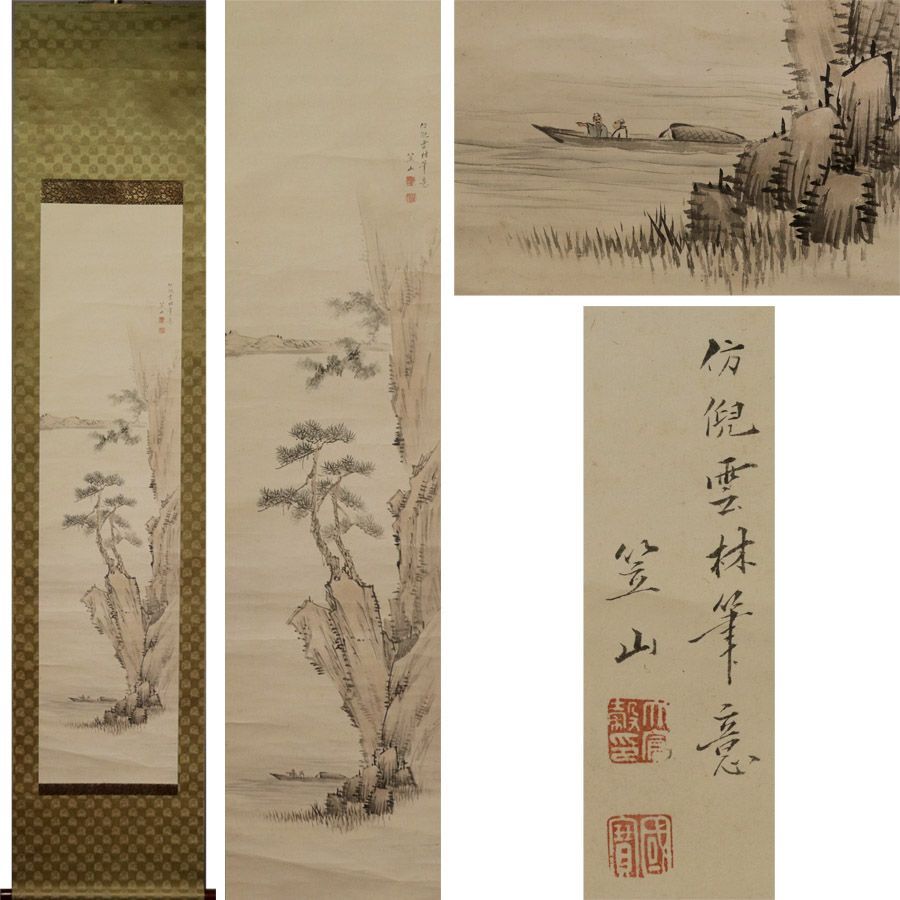 仿倪雲林筆意
笠山